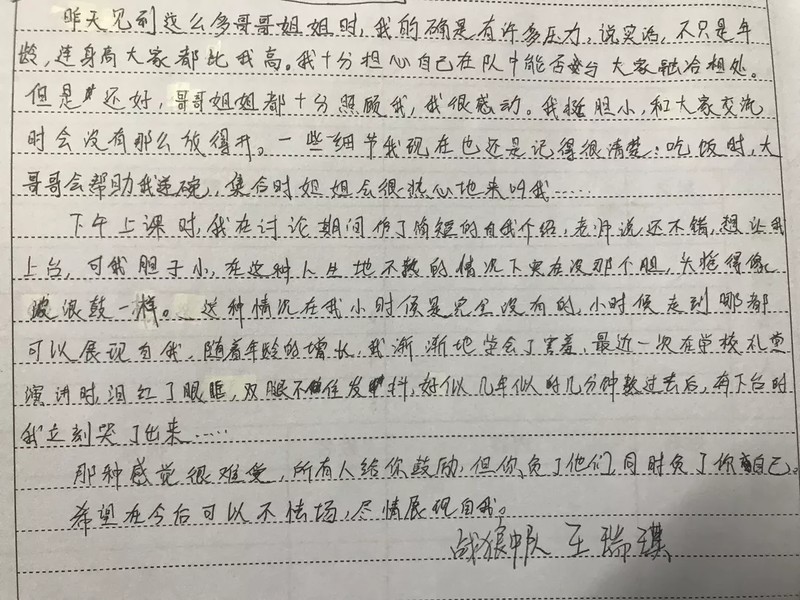 昨天见到这么多哥哥姐姐时,我的确是有许多压力,说实话,不只是年
龄,连身高大家都比我高。我十分担心自己在队中能否与大家融洽相处。
但是还好,哥哥姐姐都十分照顾我,我很感动。我挺胆小,和大家交流
时会没有那么放得开。一些细节我现在也还是记得很清楚:吃饭时,大
哥哥会帮助我递碗,集合时姐姐会很热心地来叫我……
下午上课时,我在讨论期间作了简短的自我介绍,老师说还不错,想让我
上台,可我胆子小,在这种人生地不熟的情况下实在没那个胆,头摇得像
波浪鼓一样。这种情况在我小时候是完全没有的,小时候走到哪都
可以展现自我,随着年龄的增长,我渐渐地学会了害羞,最近一次在学校礼堂
演讲时,泪红了眼眶,双腿不住发抖,好似几年似的几分钟熬过去后,有下台时
我立刻哭了出来……
那种感觉很难受,所有人给你鼓励,但你负了他们,同时负了你自己。
希望在今后可以不怯场,尽情展现自我。
战狼中队 王瑞琪